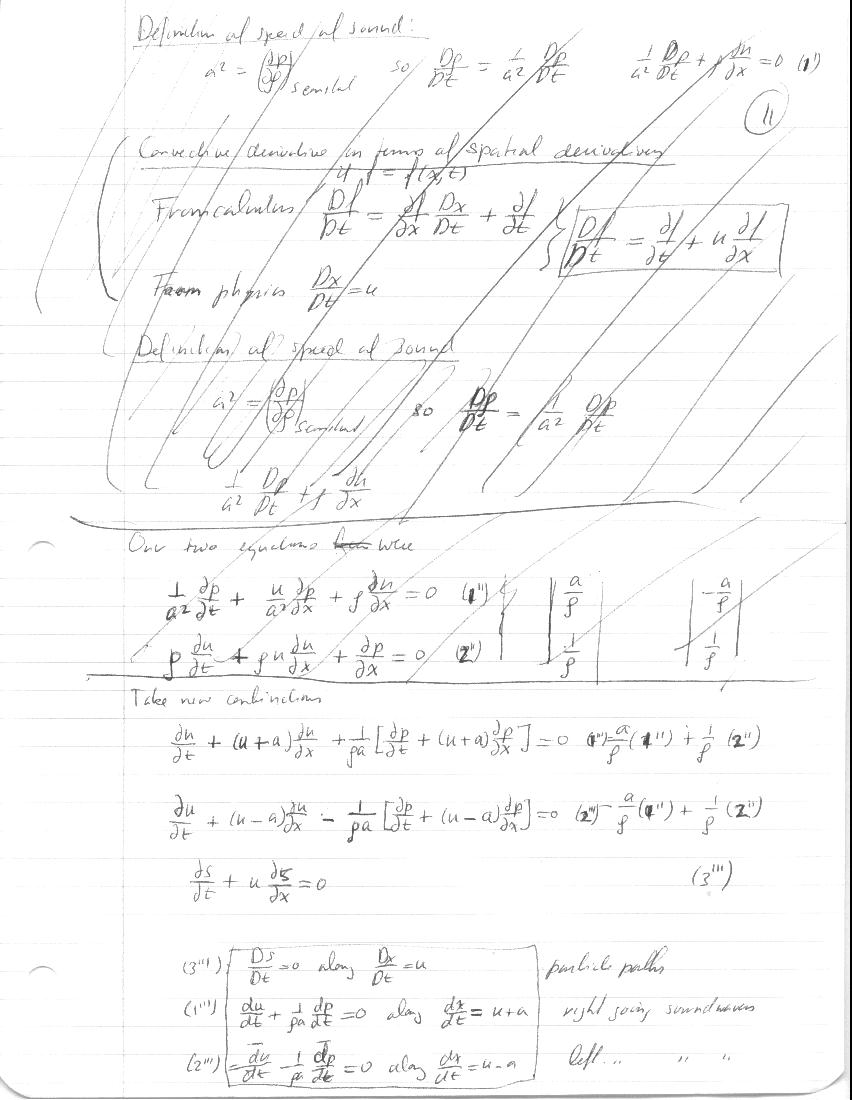 Definition of speed of sound:
a² = (∂p/∂ρ) s constant so Dρ/Dt = 1/a² Dp/Dt 1/a² Dp/Dt + ρ ∂u/∂x = 0 (1')
11
Convective derivative in terms of spatial derivatives
If f = f(x,t)
From calculus Df/Dt = ∂f/∂x Dx/Dt + ∂f/∂t } Df/Dt = ∂f/∂t + u ∂f/∂x
From physics Dx/Dt = u
Definition of speed of sound
a² = (∂p/∂ρ) s constant so Dρ/Dt = 1/a² Dp/Dt
1/a² Dp/Dt + ρ ∂u/∂x
Our two equations were
1/a² ∂p/∂t + u/a² ∂p/∂x + ρ ∂u/∂x = 0 (1'') | a/ρ | | -a/ρ |
ρ ∂u/∂t + ρu ∂u/∂x + ∂p/∂x = 0 (2'') | 1/ρ | | 1/ρ |
Take new combinations
∂u/∂t + (u+a) ∂u/∂x + 1/ρa [∂p/∂t + (u+a) ∂p/∂x] = 0 (1''')= a/ρ (1'') + 1/ρ (2'')
∂u/∂t + (u-a) ∂u/∂x - 1/ρa [∂p/∂t + (u-a) ∂p/∂x] = 0 (2''') - a/ρ (1'') + 1/ρ (2'')
∂s/∂t + u ∂s/∂x = 0 (3''')
(3''') Ds/Dt = 0 along Dx/Dt = u particle paths
(1''') du/dt + 1/ρa dp/dt = 0 along dx/dt = u+a right going soundwaves
(2''') du/dt - 1/ρa dp/dt = 0 along dx/dt = u-a left " " "